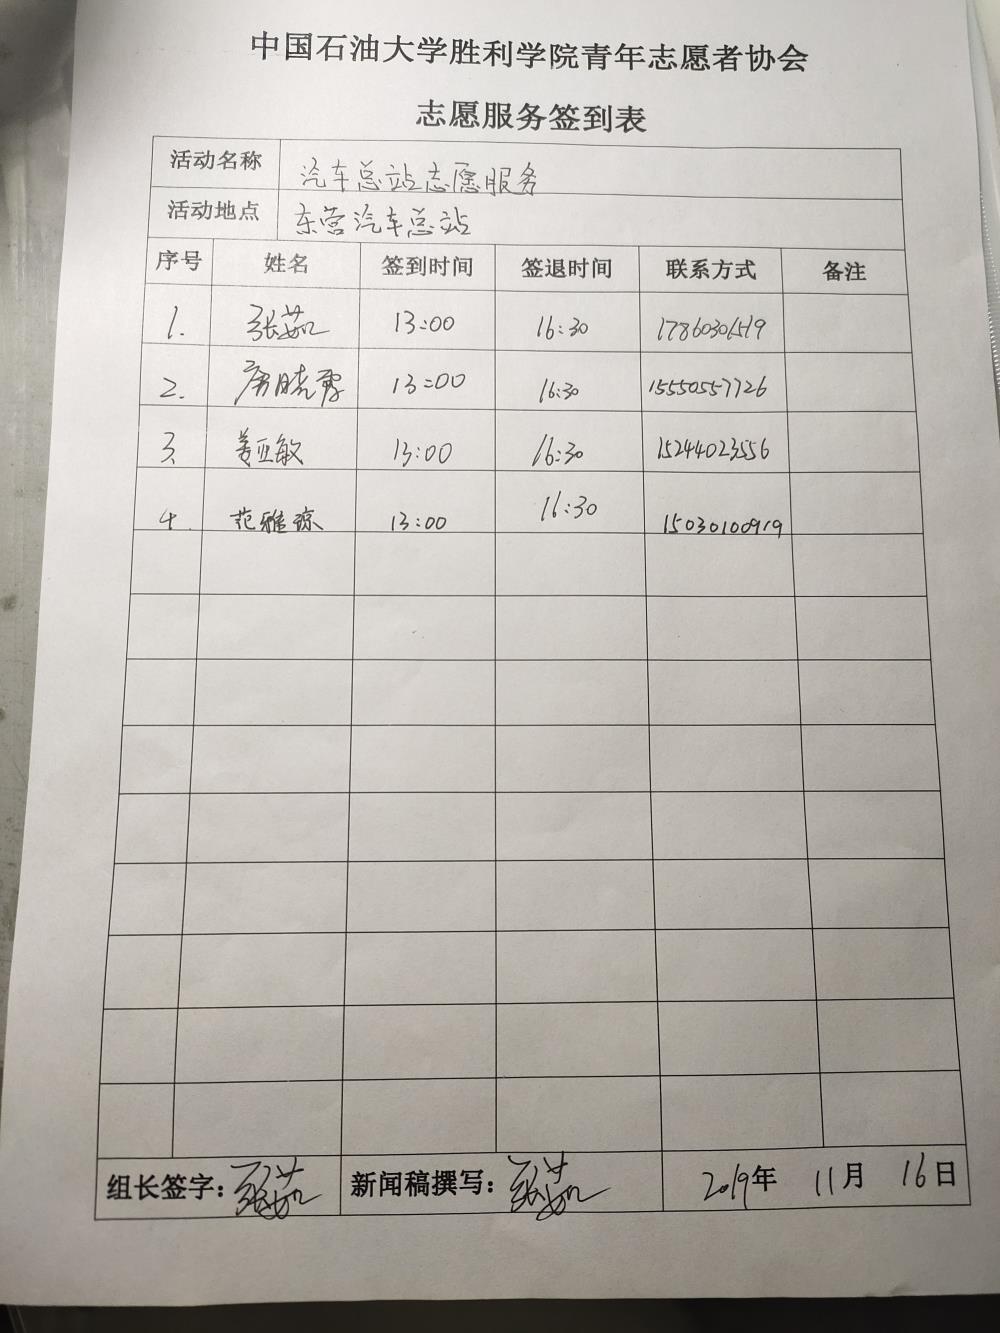 中国石油大学胜利学院青年志愿者协会
志愿服务签到表
活动名称 汽车总站志愿服务
活动地点 东营汽车总站
序号 姓名 签到时间 签退时间 联系方式 备注
1. 张茹 13:00 16:30 17860306519
2. 房晓雪 13:00 16:30 15550557726
3. 姜亚敏 13:00 16:30 15244023556
4. 范雅琼 13:00 16:30 15030100919
组长签字：张茹 新闻稿撰写：张茹 2019年 11月 16日